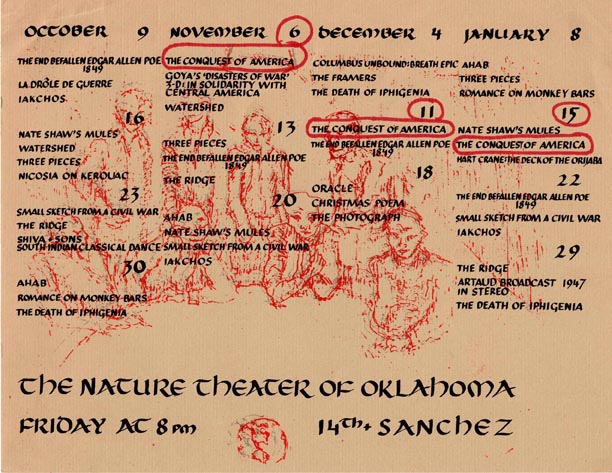 OCTOBER 9
THE END BEFALLEN EDGAR ALLEN POE
1849
LA DRÔLE DE GUERRE
IAKCHOS
16
NATE SHAW'S MULES
WATERSHED
THREE PIECES
NICOSIA ON KEROUAC
23
SMALL SKETCH FROM A CIVIL WAR
THE RIDGE
SHIVA + SONS
SOUTH INDIAN CLASSICAL DANCE
30
AHAB
ROMANCE ON MONKEY BARS
THE DEATH OF IPHIGENIA
NOVEMBER 6
THE CONQUEST OF AMERICA
GOYA'S 'DISASTERS OF WAR'
3-D: IN SOLIDARITY WITH
CENTRAL AMERICA
WATERSHED
13
THREE PIECES
THE END BEFALLEN EDGAR ALLEN POE
1849
THE RIDGE
20
AHAB
NATE SHAW'S MULES
SMALL SKETCH FROM A CIVIL WAR
IAKCHOS
DECEMBER 4
COLUMBUS UNBOUND: BREATH EPIC
THE FRAMERS
THE DEATH OF IPHIGENIA
11
THE CONQUEST OF AMERICA
THE END BEFALLEN EDGAR ALLEN POE
1849
18
ORACLE
CHRISTMAS POEM
THE PHOTOGRAPH
JANUARY 8
AHAB
THREE PIECES
ROMANCE ON MONKEY BARS
15
NATE SHAW'S MULES
THE CONQUEST OF AMERICA
HART CRANE: THE DECK OF THE ORIJABA
22
THE END BEFALLEN EDGAR ALLEN POE
1849
SMALL SKETCH FROM A CIVIL WAR
IAKCHOS
29
THE RIDGE
ARTAUD BROADCAST 1947
IN STEREO
THE DEATH OF IPHIGENIA
THE NATURE THEATER OF OKLAHOMA
FRIDAY AT 8 PM 14th + SANCHEZ